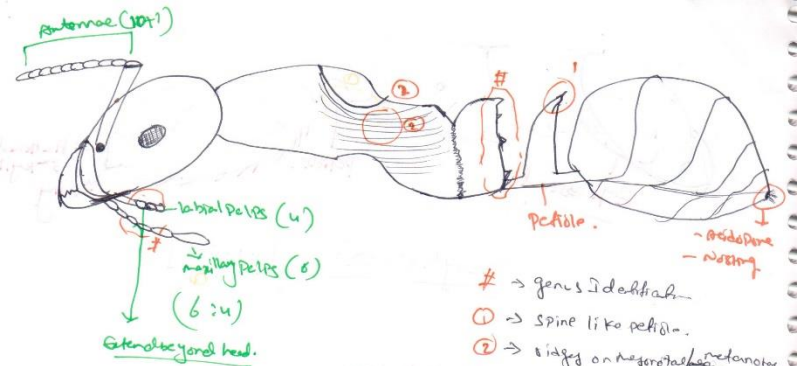 Antennae (10+1)
#
1
2
2
labial Palps (4)
#
maxillary Palps (6)
(6:4)
Extend beyond head.
Petiole.
- Acidopore
- No sting
# → genus Identification
① → spine like petiole.
② → ridges on mesonotum metanotum